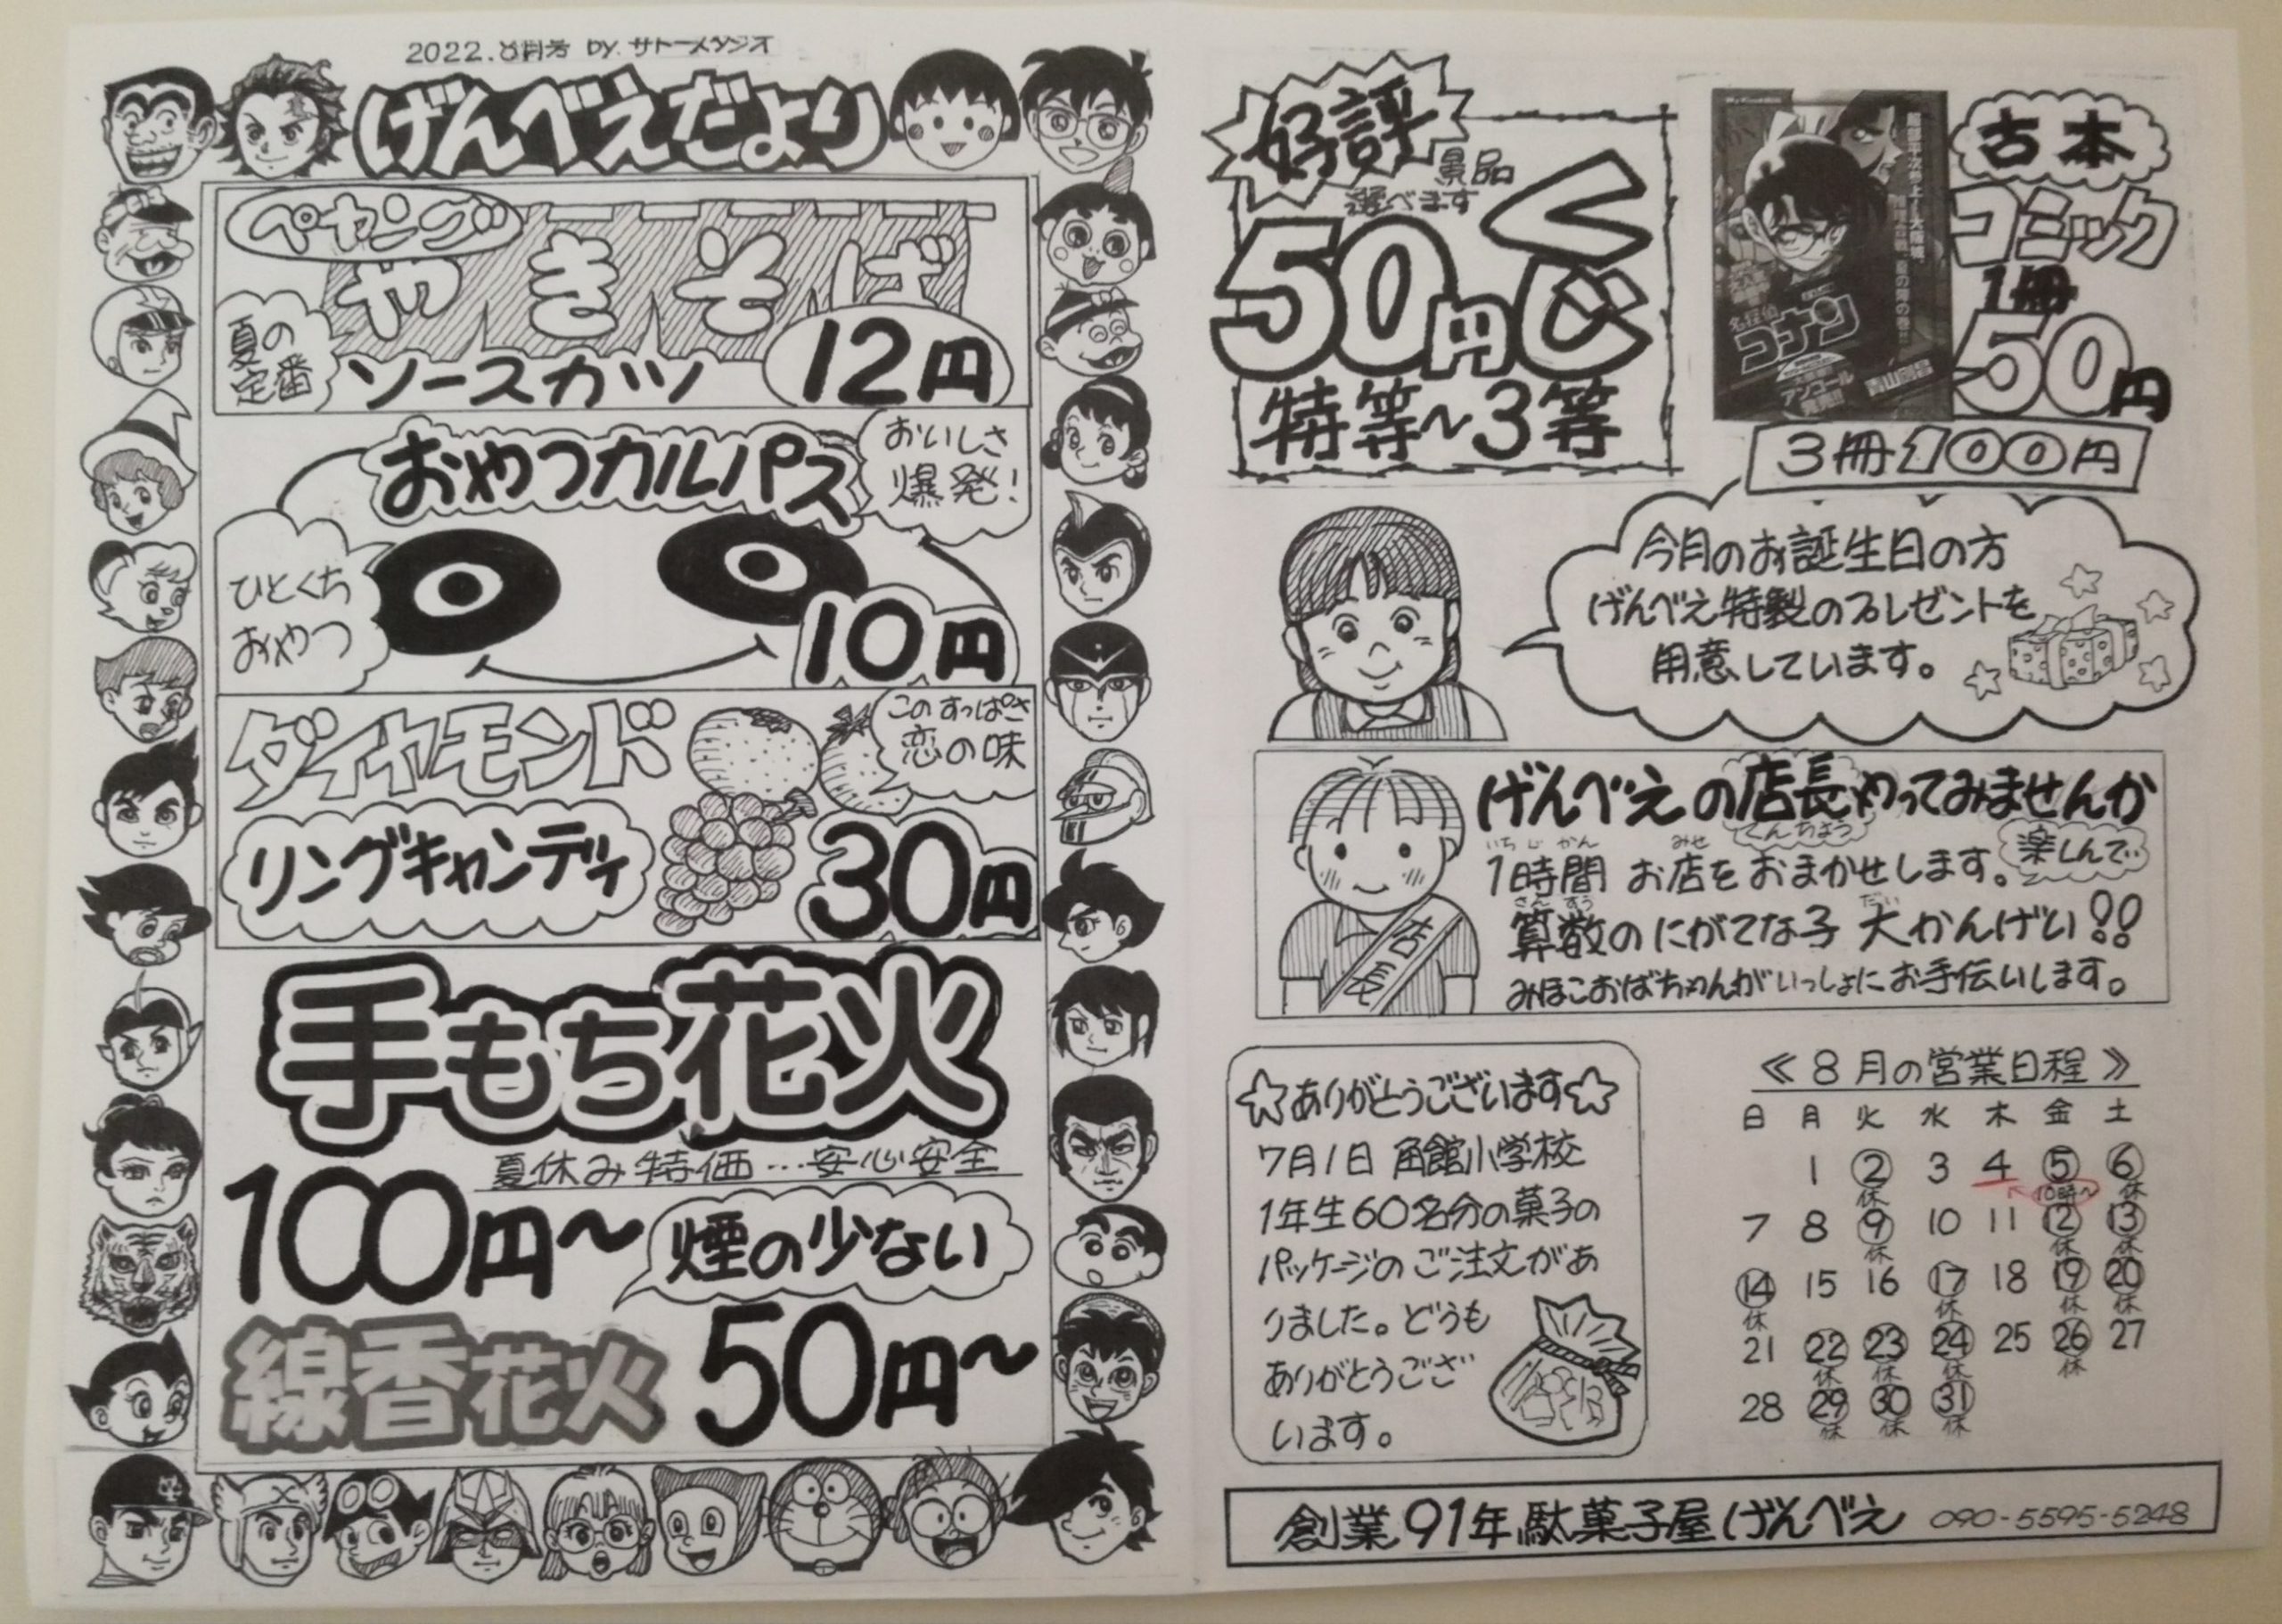 2022.8月号 by.サトースタジオ
げんべえだより
ペヤング
やきそば
夏の
定番
ソースカツ
12円
おやつカルパス
おいしさ
爆発!
ひとくち
おやつ
10円
ダイヤモンド
このすっぱさ
恋の味
リングキャンディ
30円
手もち花火
夏休み特価…安心安全
100円〜
煙の少ない
線香花火
50円〜
好評
景品
選べます
50円くじ
特等〜3等
名探偵
コナン
アンコール
青山剛昌
古本
コミック
1冊
50円
3冊100円
今月のお誕生日の方
げんべえ特製のプレゼントを
用意しています。
店長
げんべえの店長やってみませんか
てんちょう
いちじかん みせ
1時間 お店をおまかせします。
楽しんで..
さんすう だい
算数のにがてな子 大かんげい!!
みほこおばちゃんがいっしょにお手伝いします。
☆ありがとうございます☆
7月1日 角館小学校
1年生60名分の菓子の
パッケージのご注文があ
りました。どうも
ありがとうござ
います。
≪8月の営業日程≫
日 月 火 水 木 金 土
1 2 3 4 5 6
休 10時〜 休
7 8 9 10 11 12 13
休 休 休
14 15 16 17 18 19 20
休 休 休 休
21 22 23 24 25 26 27
休 休 休 休
28 29 30 31
休 休 休
創業91年駄菓子屋げんべえ 090-5595-5248